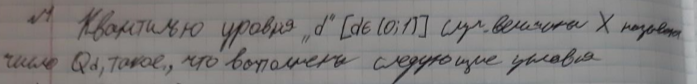 №1 Квантилью уровня „d“ [d∈(0;1)] случ. величины X называем
число Qd, такое, что выполнены следующие условия